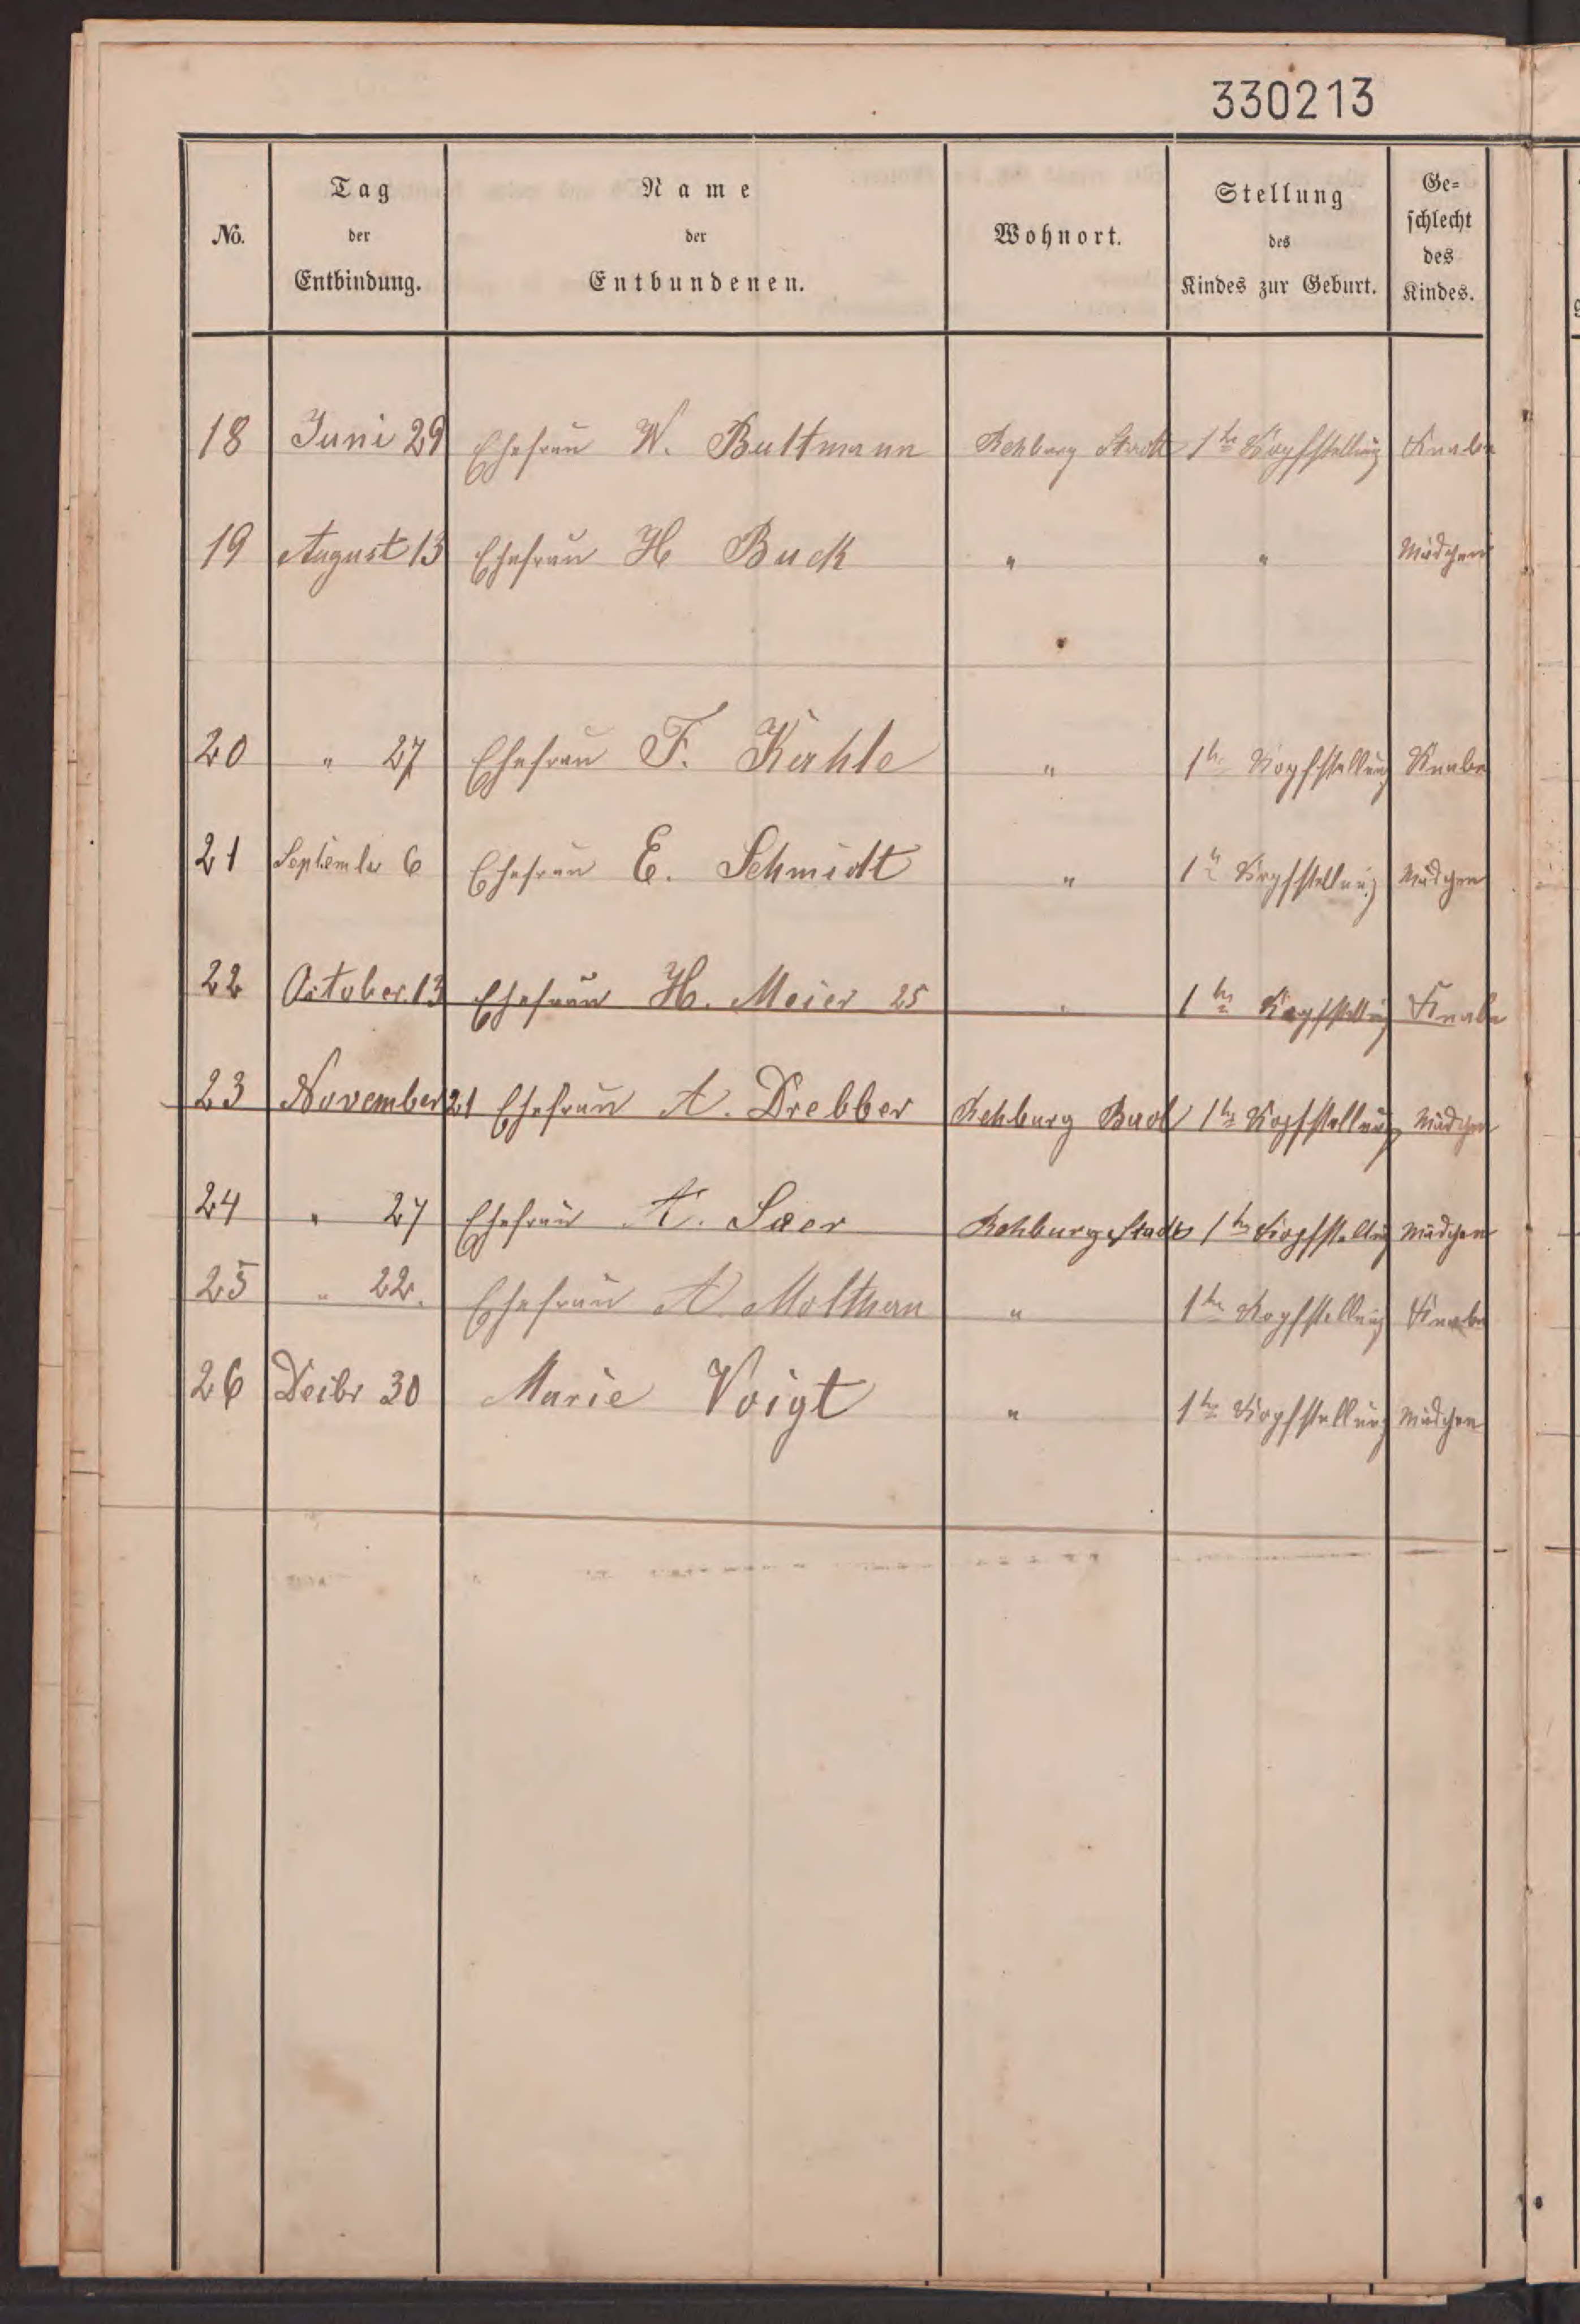 330213
No. Tag der Entbindung. Name der Entbundenen. Wohnort. Stellung des Kindes zur Geburt. Ge=schlecht des Kindes.
18 Juni 29 Ehefrau W. Bultmann Rehburg Stadt 1te Kopfstellung Knabe
19 August 13 Ehefrau H Buck " " Mädchen
20 " 27 Ehefrau F. Kahle " 1te Kopfstellung Knabe
21 September 6 Ehefrau E. Schmidt " 1te Kopfstellung Mädchen
22 October 13 Ehefrau H. Meier 25 " 1te Kopfstellung Knabe
23 November 21 Ehefrau A. Drebber Rehburg Bad 1te Kopfstellung Mädchen
24 " 27 Ehefrau A. Saer Rehburg Stadt 1te Kopfstellung Mädchen
25 " 22. Ehefrau A. Molthan " 1te Kopfstellung Knabe
26 Decbr 30 Marie Voigt " 1te Kopfstellung Mädchen